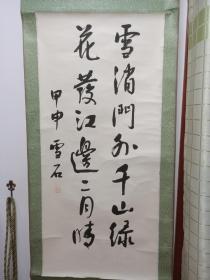 雪消門外千山緑
花發江邊二月晴
甲申 雪石